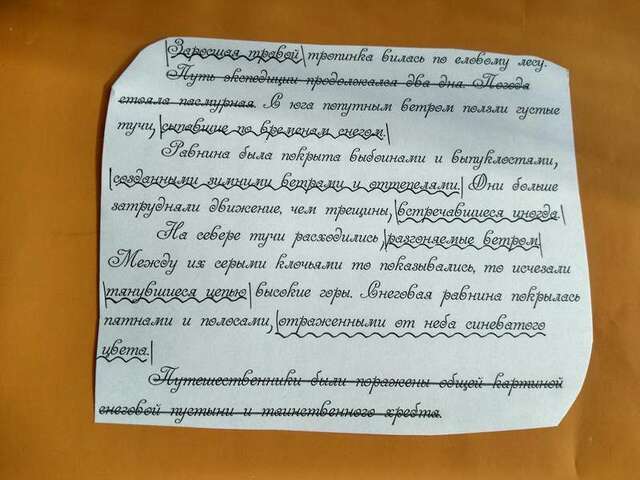 Заросшая травой тропинка вилась по еловому лесу.
Путь экспедиции продолжался два дня. Погода
стояла пасмурная. В юга попутным ветром ползли густые
тучи, сыпавшие по временам снегом.
Равнина была покрыта выбоинами и выпуклостями,
созданными зимними ветрами и оттепелями. Они больше
затрудняли движение, чем трещины, встречавшиеся иногда.
На севере тучи расходились, разгоняемые ветром.
Между их серыми клочьями то показывались, то исчезали
тянувшиеся цепью высокие горы. Снеговая равнина покрылась
пятнами и полосами, отраженными от неба синеватого
цвета.
Путешественники были поражены общей картиной
снеговой пустыни и таинственного хребта.